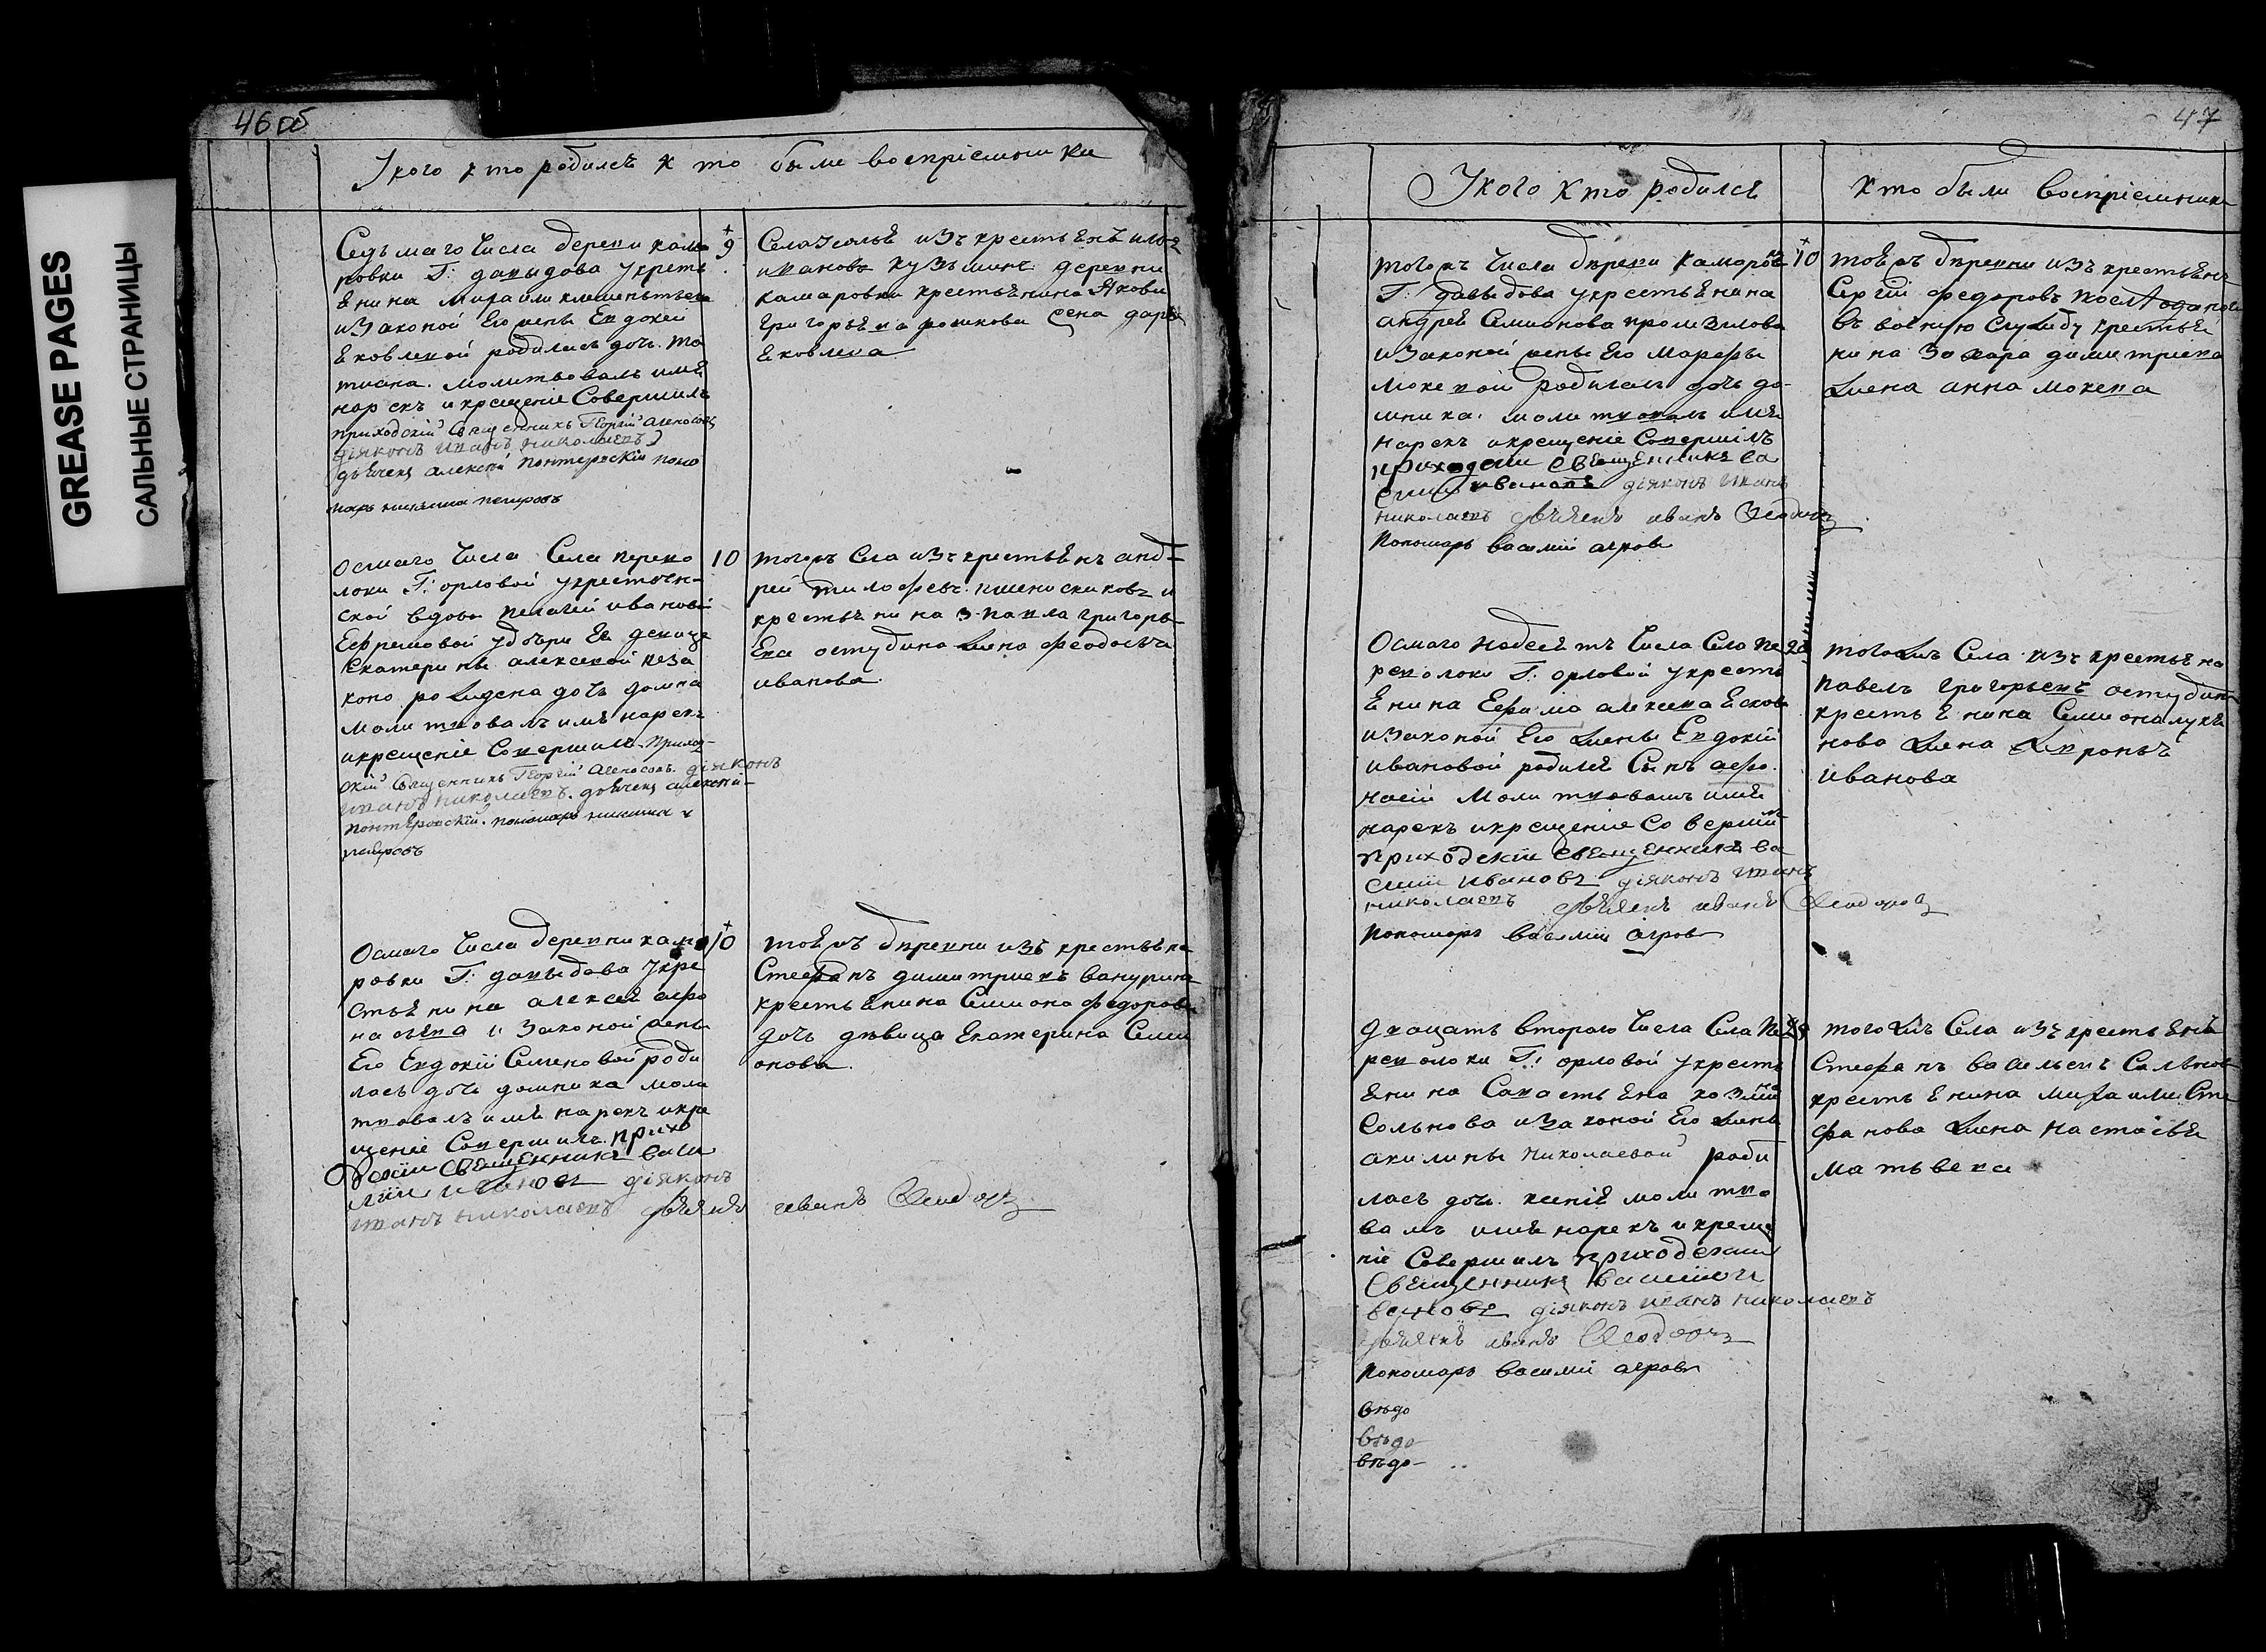 GREASE PAGES
САЛЬНЫЕ СТРАНИЦЫ
46 об
У кого кто родилсѣ кто были воспрiемники
Седьмаго числа деревни кама
ровки Г: давыдова укресть
ѣнина михаили
изаконой Его жены Евдокей
ѣковлевой родилась дочь та
тиана. молитвовалъ имѣ
нарекъ икрещенiе Совершилъ
приходскiй Священникъ Георгiй
дiяконъ иванъ николаевъ
дьячекъ алексѣй поно
марь никита петровъ
9
изъ крестьѣнъ
ивановъ кузьминъ деревни
камаровки крестьѣнина Якова
григорьева жена дарья
ѣковлева
осмаго числа Села перево
локи Г: орловой укрестьен
ской вдовы пелагеи ивановой
Ефремовой удочери Ея девице
Екатерины алексеевой неза
коно рождена дочь домна
молитвовалъ имѣ нарекъ
икрещенiе Совершилъ приход
скiй Священникъ Георгiй дiяконъ
иванъ николаевъ. дьячекъ алексѣй
пономарь никита
петровъ
10
тогожъ Села изъ крестьѣнъ анд
рей и
крестьѣнина павла григорь
Ева остудина жена феодосья
иванова
Осмаго числа деревни кама
ровки Г: давыдова укре
стьѣнина алексея афо
насьева изаконой жены
Его Евдокiи Семеновой роди
лась дочь домника моли
твовалъ имѣ нарекъ икре
щенiе Совершилъ прихо
дскiй Священникъ васи
лiй ивановъ дiяконъ
иванъ николаевъ дьячекъ иванъ Феодоровъ
10
тоѣжъ деревни изъ крестьѣнъ
Стефанъ димитриевъ ванурин
крестьѣнина Симиона федорова
дочь дѣвица Екатерина Сими
онова.
47
У кого кто родилсѣ
кто были воспрiемники
тогожъ числа деревни камаровки
Г: давыдова укрестьѣнина
андрей Симионова
изаконой жены Его марфы
мокевой родилась дочь до
мника. молитвовалъ имѣ
нарекъ икрещенiе Совершилъ
приходскiй Священникъ ва
силiй ивановъ дiяконъ иванъ
николаевъ дьячекъ иванъ Феодоровъ
пономарь василiй
10
тоѣжъ деревни изъ крестьѣнъ
Сергiй федоровъ
въ воѣнную Службу крестьѣ
нина Захара димитрiева
жена анна мокева
Осмаго надесѣтъ числа Села пе
револоки Г: орловой укресть
ѣнина Ефима алексева
изаконой Его жены Евдокiи
ивановой родилсѣ Сынъ афо
насiй молитвовалъ имѣ
нарекъ икрещенiе Совершилъ
приходскiй Священникъ ва
силiй ивановъ дiяконъ иванъ
николаевъ дьячекъ иванъ Феодоровъ
пономарь василiй
тогожъ Села изъ крестьѣнъ
павелъ григорьевъ остудинъ
крестьѣнина Симиона лукѣ
нова жена
иванова
Двацать втораго числа Села пе
револоки Г: орловой укресть
ѣнина Савастьѣна
Сольнова изаконой Его жены
акилины николаевой роди
лась дочь. ксенiѣ молитво
валъ имѣ нарекъ икреще
нiе Совершилъ приходскiй
Священникъ василiй и
вановъ дiяконъ иванъ николаевъ
дьячекъ иванъ Феодоровъ
пономарь василiй
вѣдо
вѣдо
вѣдо
тогожъ Села изъ крестьѣнъ
Стефанъ васильевъ Сальнов
крестьѣнина михаила Сте
фанова жена настасьѣ
матьвева